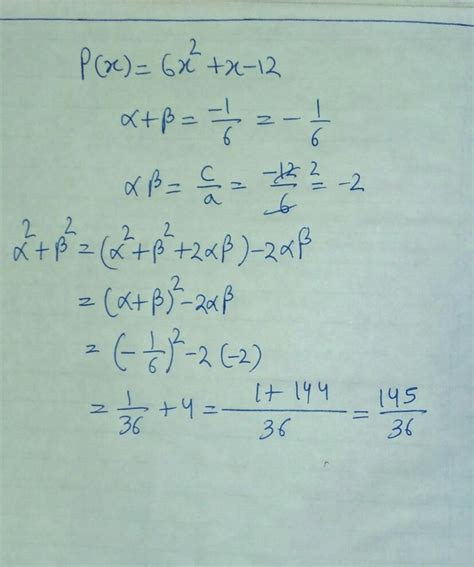 P(x) = 6x² + x - 12
α + β = -1/6 = - 1/6
αβ = c/a = -12/6 2 = -2
α² + β² = (α² + β² + 2αβ) - 2αβ
= (α + β)² - 2αβ
= (- 1/6)² - 2 (-2)
= 1/36 + 4 = 1 + 144/36 = 145/36